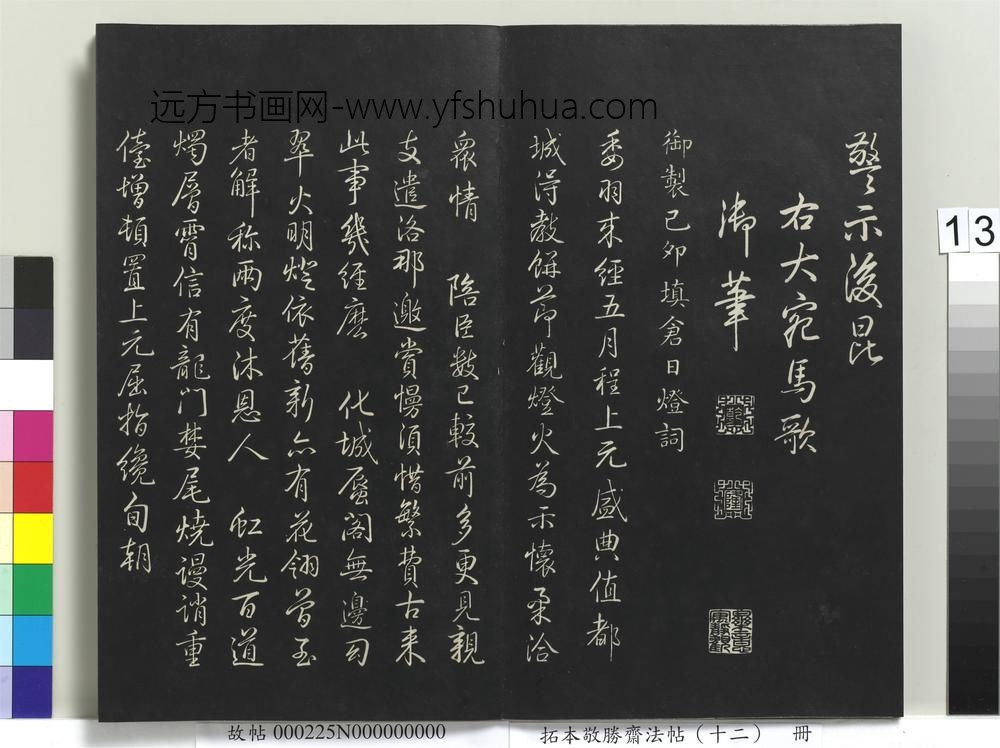 远方书画网-www.yfshuhua.com
警示後昆
右大宛馬歌
御筆
御製己卯填倉日燈詞
委羽来經五月程上元盛典值都
城得教餅節觀燈火為示懷柔洽
衆情 陪臣數已較前多更見親
支遣洛那邀賞慢須惜繁費古来
此事幾經麽 化城蜃閣無邊勾
翠火明燈依舊新亦有花翎曾至
者解称兩度沐恩人 虹光百道
燭層霄信有龍門婪尾燒謾誚重
儓增頓置上元屈指纔旬朝
13
故帖 000225N000000000
拓本敬勝齋法帖（十二） 冊